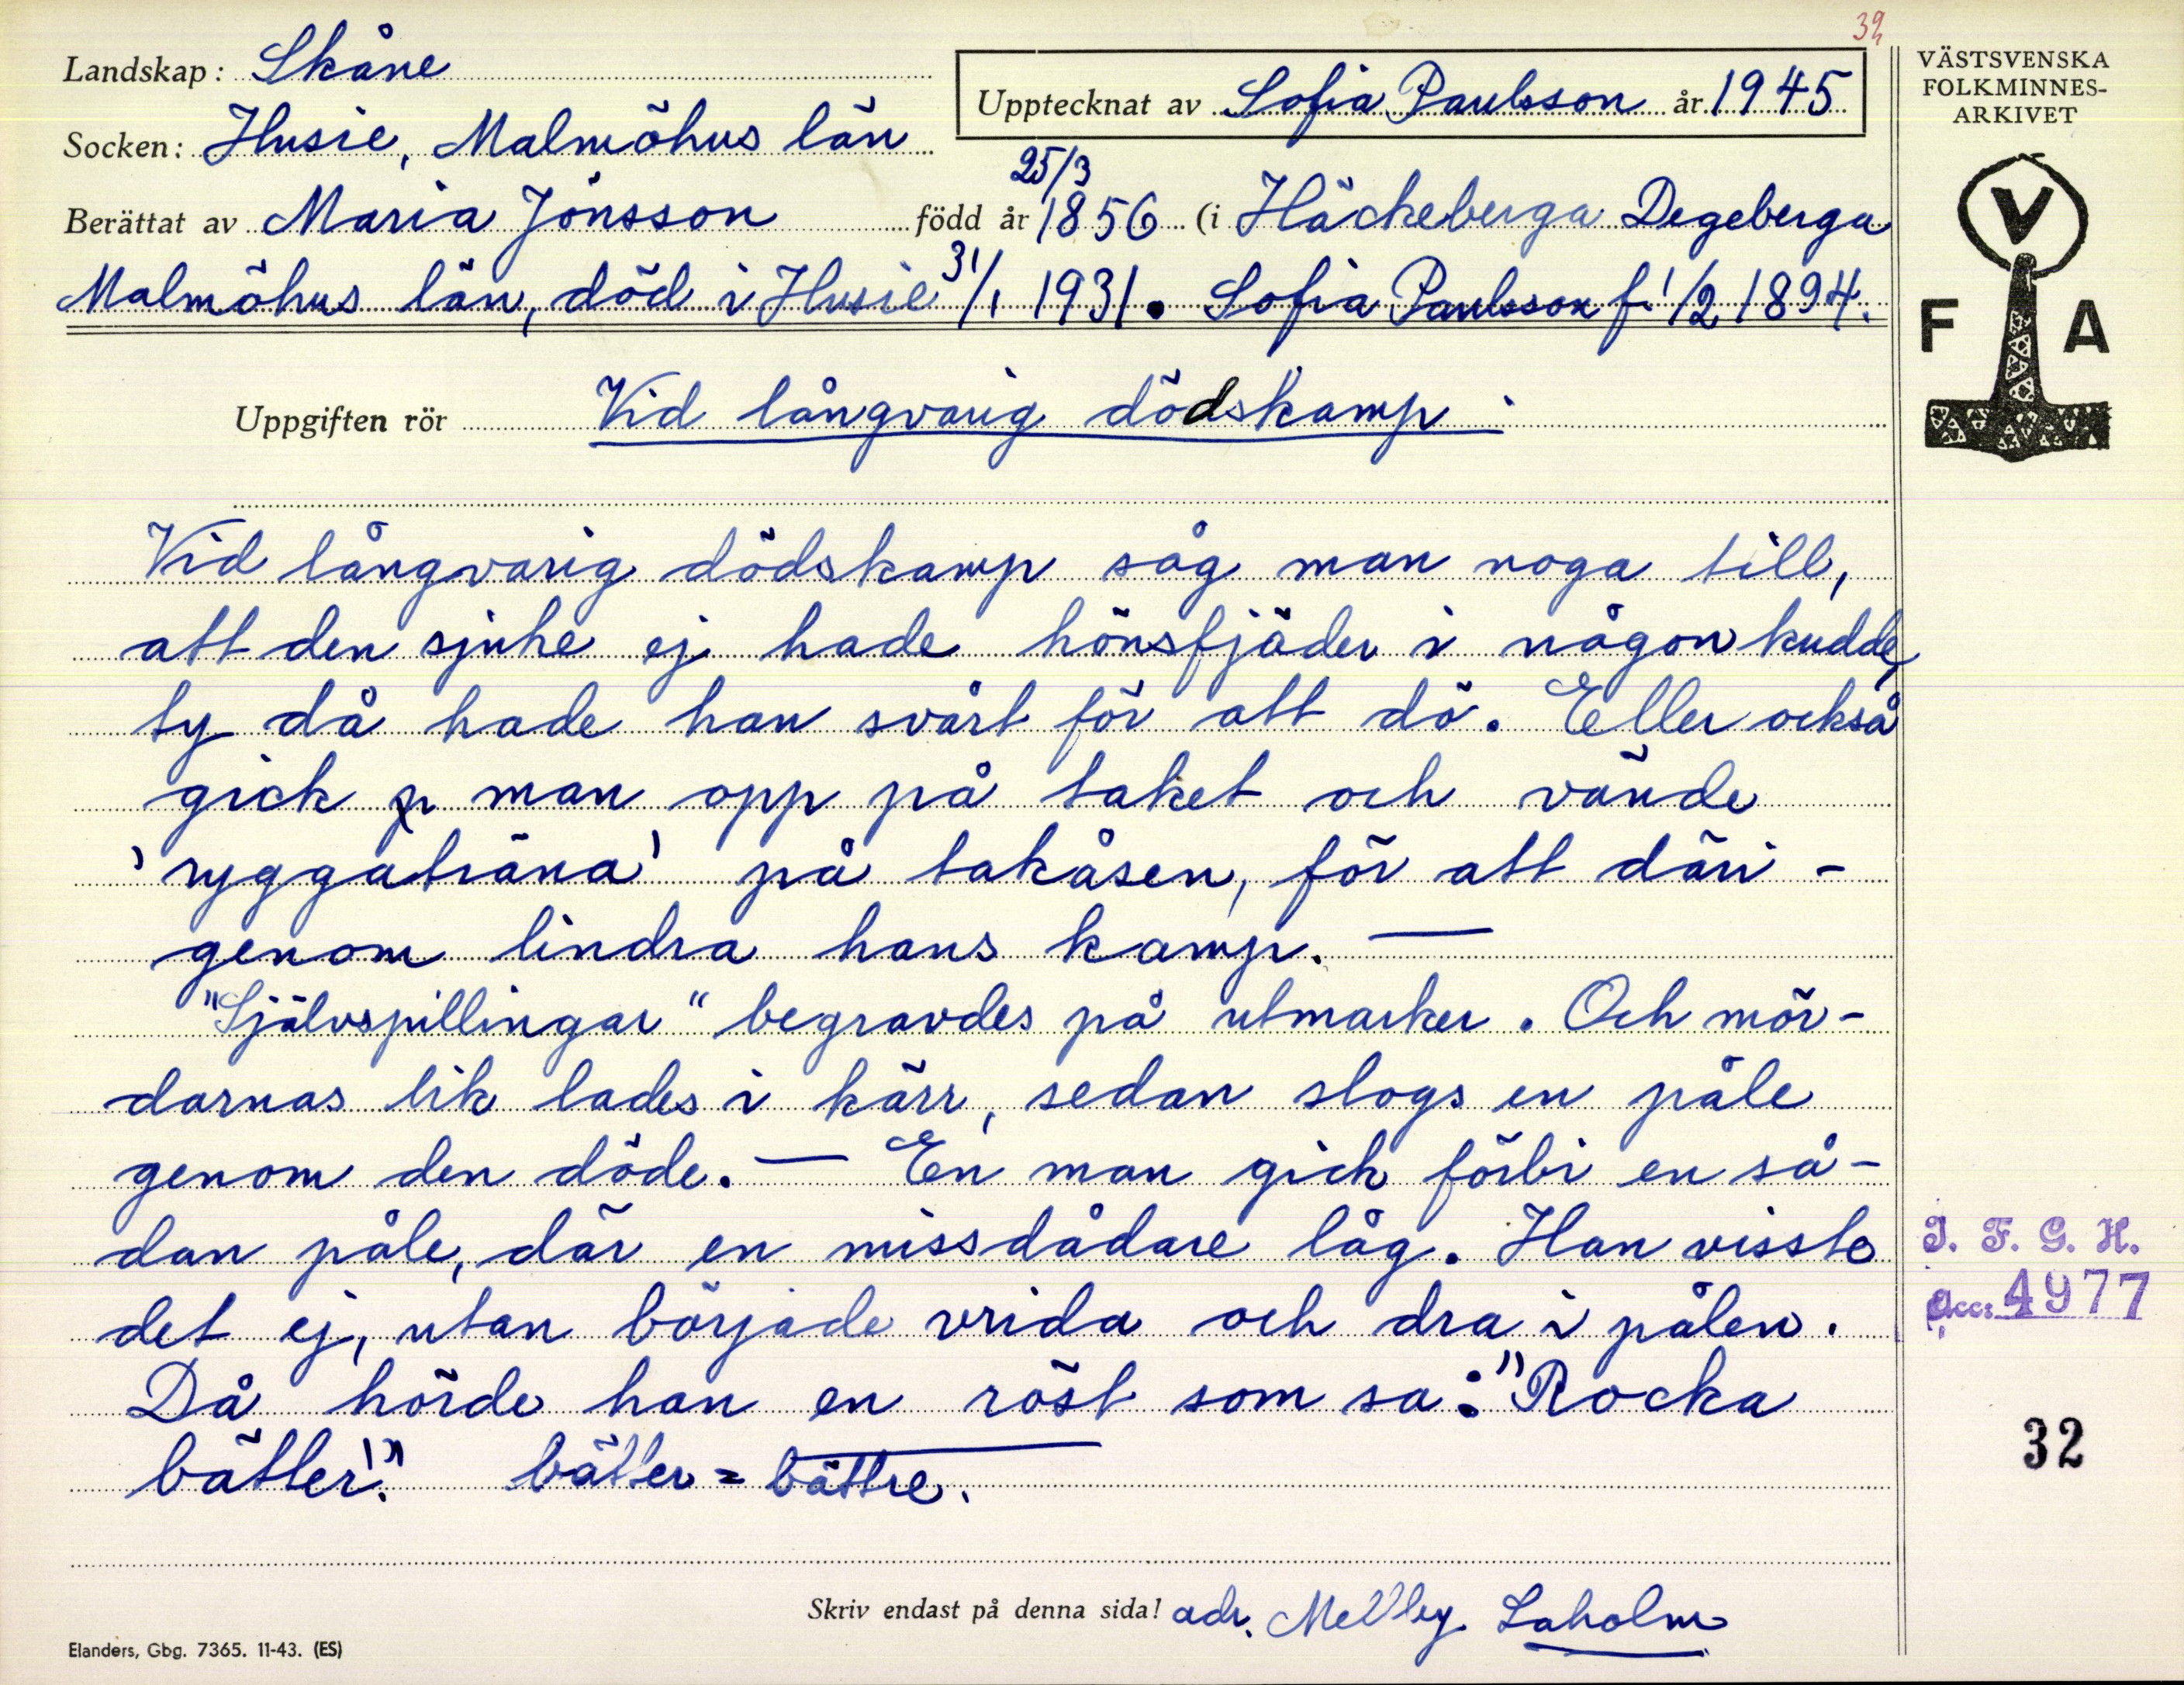 39
Landskap: Skåne
Upptecknat av Sofia Paulsson år 1945
Socken: Husie, Malmöhus län
25/3
Berättat av Maria Jönsson född år 1856 (i Häckeberga Degeberga
Malmöhus län, död i Husie 31/1 1931. Sofia Paulsson f. 1/2 1894.
Uppgiften rör Vid långvarig dödskamp.
Vid långvarig dödskamp såg man noga till,
att den sjuke ej hade hönsfjäder i någon kudde,
ty då hade han svårt för att dö. Eller också
gick man opp på taket och vände
'ryggaträna' på takåsen, för att däri-
genom lindra hans kamp. —
"Självspillingar" begravdes på utmarker. Och mör-
darnas lik lades i kärr, sedan slogs en påle
genom den döde. — En man gick förbi en så-
dan påle, där en missdådare låg. Han visste
det ej, utan började vrida och dra i pålen.
Då hörde han en röst som sa: "Rocka
bätter!" bätter = bättre.
Skriv endast på denna sida! adr. Mellby Laholm
Elanders, Gbg. 7365. 11-43. (ES)
VÄSTSVENSKA
FOLKMINNES-
ARKIVET
V
F A
I. F. G. H.
Acc: 4977
32